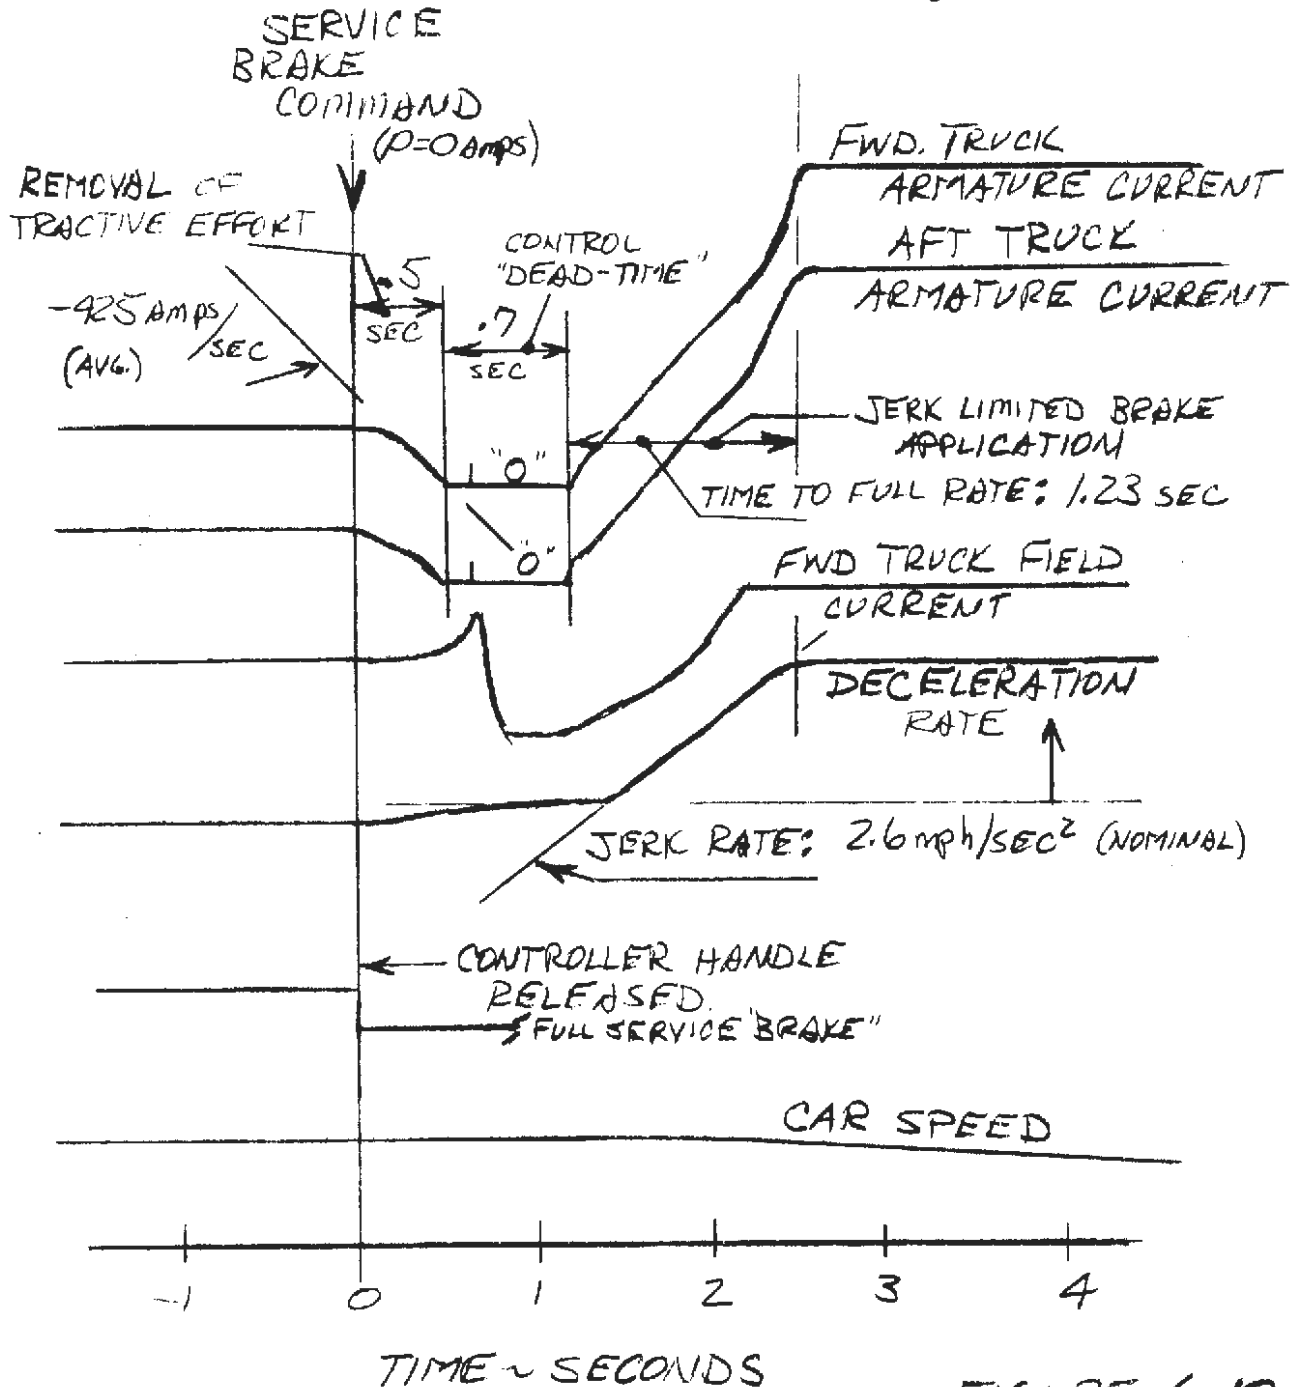 SERVICE
BRAKE
COMMAND
(P=0 AMPS)
REMOVAL OF
TRACTIVE EFFORT
-425 AMPS/SEC
(AVG.)
.5
SEC
CONTROL
"DEAD-TIME"
.7
SEC
FWD. TRUCK
ARMATURE CURRENT
AFT TRUCK
ARMATURE CURRENT
JERK LIMITED BRAKE
APPLICATION
"0"
TIME TO FULL RATE: 1.23 SEC
"0"
FWD TRUCK FIELD
CURRENT
DECELERATION
RATE
JERK RATE: 2.6 mph/SEC² (NOMINAL)
CONTROLLER HANDLE
RELEASED
"FULL SERVICE BRAKE"
CAR SPEED
-1 0 1 2 3 4
TIME ~ SECONDS